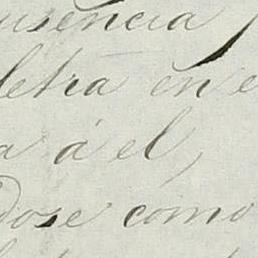 usencia
letra en e
a á el,
dose como